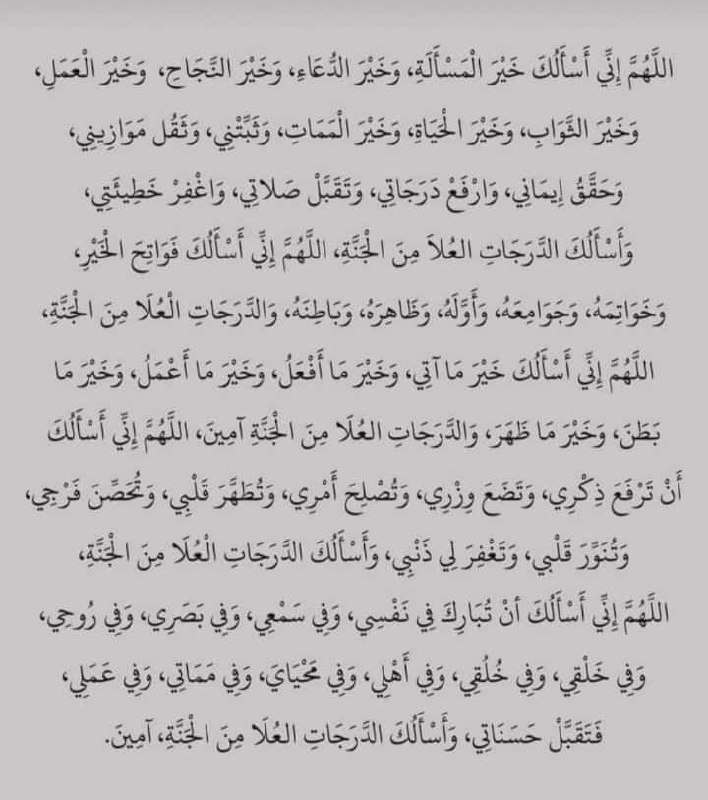 اللَّهُمَّ إِنِّي أَسْأَلُكَ خَيْرَ الْمَسْأَلَةِ، وَخَيْرَ الدُّعَاءِ، وَخَيْرَ النَّجَاحِ، وَخَيْرَ الْعَمَلِ،
وَخَيْرَ الثَّوَابِ، وَخَيْرَ الْحَيَاةِ، وَخَيْرَ الْمَمَاتِ، وَثَبِّتْنِي، وَثَقُل مَوَازِينِي،
وَحَقَّقُ إِيمَانِي، وَارْفَعْ دَرَجَاتِي، وَتَقَبَّلْ صَلاتِي، وَاغْفِرْ خَطِيئَتِي،
وَأَسْأَلُكَ الدَّرَجَاتِ العُلاَ مِنَ الْجَنَّةِ، اللَّهُمَّ إِنِّي أَسْأَلُكَ فَوَاتِحَ الْخَيْرِ،
وَخَوَاتِمَهُ، وَجَوَامِعَهُ، وَأَوَّلَهُ، وَظَاهِرَهُ، وَبَاطِنَهُ، وَالدَّرَجَاتِ الْعُلَا مِنَ الْجَنَّةِ،
اللَّهُمَّ إِنِّي أَسْأَلُكَ خَيْرَ مَا آتِي، وَخَيْرَ مَا أَفْعَلُ، وَخَيْرَ مَا أَعْمَلُ، وَخَيْرَ مَا
بَطَنَ، وَخَيْرَ مَا ظَهَرَ، وَالدَّرَجَاتِ العُلَا مِنَ الْجَنَّةِ آمِينَ، اللَّهُمَّ إِنِّي أَسْأَلُكَ
أَنْ تَرْفَعَ ذِكْرِي، وَتَضَعَ وِزْرِي، وَتُصْلِحَ أَمْرِي، وَتُطَهَّرَ قَلْبِي، وَتُحَصِّنَ فَرْجِي،
وَتُنَوَّرَ قَلْبي، وَتَغْفِرَ لِي ذَنْبِي، وَأَسْأَلُكَ الدَّرَجَاتِ الْعُلَا مِنَ الْجَنَّةِ،
اللَّهُمَّ إِنِّي أَسْأَلُكَ أنْ تُبَارِكَ فِي نَفْسِي، وَفِي سَمْعِي، وَفِي بَصَرِي، وَفِي رُوحِي،
وَفِي خَلْقِي، وَفِي خُلُقِي، وَفِي أَهْلِي، وَفِي مَحْيَايَ، وَفِي مَمَاتِي، وَفِي عَمَلِي،
فَتَقَبَّلْ حَسَنَاتِي، وَأَسْأَلُكَ الدَّرَجَاتِ العُلَا مِنَ الْجَنَّةِ، آمِينَ.